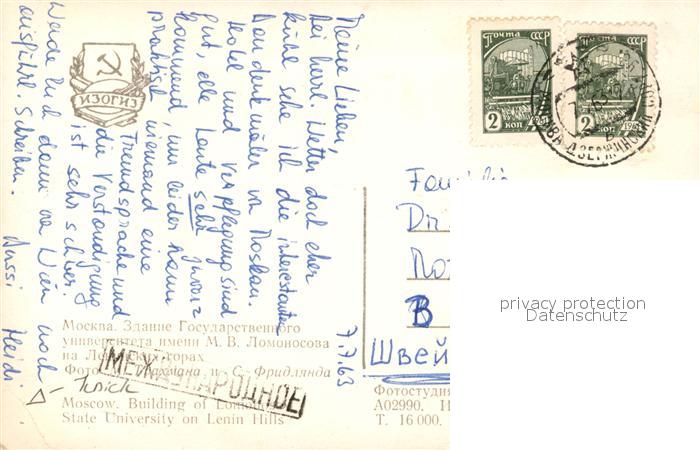 7.7.63
Meine Lieben,
Bei herrl. Wetter doch eher
kühl sehe ich die interessanten
Baudenkmäler von Moskau.
Hotel und Verpflegung sind
gut, alle Leute sehr
kommend, nur leider kann
praktisch niemand eine
Fremdsprache und
die Verständigung
ist sehr schwer.
Werde Euch dann von Wien noch
ausführl. schreiben.
Bussi Heidi
ИЗОГИЗ
Москва. Здание Государственного
университета имени М. В. Ломоносова
на Ленинских горах
Фото и С. Фридлянда
МЕЖДУНАРОДНОЕ
Moscow. Building of Lomonosov
State University on Lenin Hills
Почта СССР
2 коп 1961
Почта СССР
2 коп 1961
Швей
Фотостудия
А02990. И
Т. 16 000.
privacy protection
Datenschutz